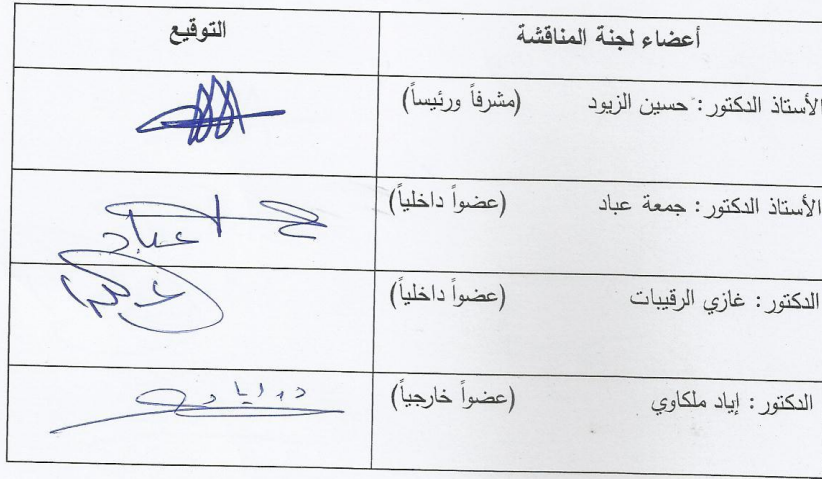 أعضاء لجنة المناقشة التوقيع
الأستاذ الدكتور: حسين الزيود (مشرفاً ورئيساً)
الأستاذ الدكتور: جمعة عباد (عضواً داخلياً)
عباد
الدكتور: غازي الرقيبات (عضواً داخلياً)
الدكتور: إياد ملكاوي (عضواً خارجياً)
د. اياد